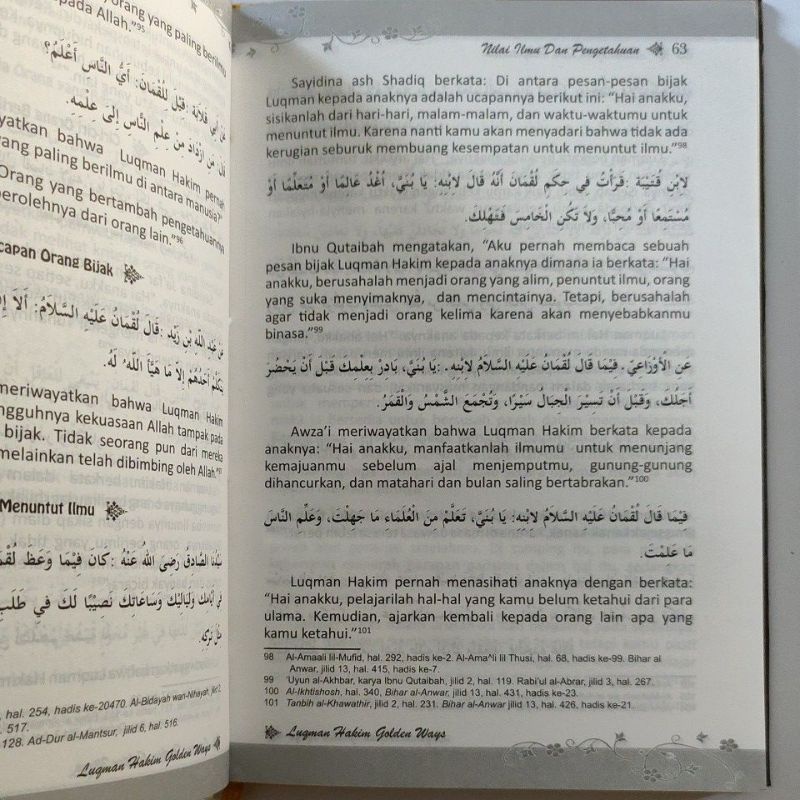 orang yang paling berilmu
pada Allah."95
عَنْ أَبِي قِلَابَةَ: قِيْلَ لِلُقْمَانَ: أَيُّ النَّاسِ أَعْلَمُ؟
قَالَ مَنِ ازْدَادَ مِنْ عِلْمِ النَّاسِ إِلَى عِلْمِهِ.
yatkan bahwa Luqman Hakim pernah
yang paling berilmu di antara manusia?"
Orang yang bertambah pengetahuannya
perolehnya dari orang lain."96
capan Orang Bijak
عَنْ عَبْدِ اللّٰهِ بْنِ زَيْدٍ :قَالَ لُقْمَانُ عَلَيْهِ السَّلَامُ: أَلَا
يَتَكَلَّمُ أَحَدُهُمْ إِلَّا مَا هَيَّأَ اللّٰهُ لَهُ.
meriwayatkan bahwa Luqman Hakim
ngguhnya kekuasaan Allah tampak pada
bijak. Tidak seorang pun dari mereka
melainkan telah dibimbing oleh Allah."97
Menuntut Ilmu
سَيِّدُنَا الصَّادِقُ رَضِيَ اللّٰهُ عَنْهُ :كَانَ فِيْمَا وَعَظَ
فِي أَيَّامِكَ وَلَيَالِيْكَ وَسَاعَاتِكَ نَصِيْبًا لَكَ فِي طَلَبِ
hal. 254, hadis ke-20470. Al-Bidayah wan-Nihayah, jilid 2,
517.
128. Ad-Dur al-Mantsur, jilid 6, hal. 516.
Luqman Hakim Golden Ways
Nilai Ilmu Dan Pengetahuan 63
Sayidina ash Shadiq berkata: Di antara pesan-pesan bijak
Luqman kepada anaknya adalah ucapannya berikut ini: "Hai anakku,
sisikanlah dari hari-hari, malam-malam, dan waktu-waktumu untuk
menuntut ilmu. Karena nanti kamu akan menyadari bahwa tidak ada
kerugian seburuk membuang kesempatan untuk menuntut ilmu."98
لِابْنِ قُتَيْبَةَ :قَرَأْتُ فِي حِكَمِ لُقْمَانَ أَنَّهُ قَالَ لِابْنِهِ: يَا بُنَيَّ، اُغْدُ عَالِمًا أَوْ مُتَعَلِّمًا أَوْ
مُسْتَمِعًا أَوْ مُحِبًّا، وَلَا تَكُنِ الْخَامِسَ فَتَهْلِكَ.
Ibnu Qutaibah mengatakan, "Aku pernah membaca sebuah
pesan bijak Luqman Hakim kepada anaknya dimana ia berkata: "Hai
anakku, berusahalah menjadi orang yang alim, penuntut ilmu, orang
yang suka menyimaknya, dan mencintainya. Tetapi, berusahalah
agar tidak menjadi orang kelima karena akan menyebabkanmu
binasa."99
عَنِ الْأَوْزَاعِيِّ .فِيْمَا قَالَ لُقْمَانُ عَلَيْهِ السَّلَامُ لِابْنِهِ .:يَا بُنَيَّ، بَادِرْ بِعِلْمِكَ قَبْلَ أَنْ يَحْضُرَ
أَجَلُكَ، وَقَبْلَ أَنْ تَسِيْرَ الْجِبَالُ سَيْرًا، وَتُجْمَعَ الشَّمْسُ وَالْقَمَرُ.
Awza'i meriwayatkan bahwa Luqman Hakim berkata kepada
anaknya: "Hai anakku, manfaatkanlah ilmumu untuk menunjang
kemajuanmu sebelum ajal menjemputmu, gunung-gunung
dihancurkan, dan matahari dan bulan saling bertabrakan."100
فِيْمَا قَالَ لُقْمَانُ عَلَيْهِ السَّلَامُ لِابْنِهِ: يَا بُنَيَّ، تَعَلَّمْ مِنَ الْعُلَمَاءِ مَا جَهِلْتَ، وَعَلِّمِ النَّاسَ
مَا عَلِمْتَ.
Luqman Hakim pernah menasihati anaknya dengan berkata:
"Hai anakku, pelajarilah hal-hal yang kamu belum ketahui dari para
ulama. Kemudian, ajarkan kembali kepada orang lain apa yang
kamu ketahui."101
98 Al-Amaali lil-Mufid, hal. 292, hadis ke-2. Al-Ama^li lil Thusi, hal. 68, hadis ke-99. Bihar al
Anwar, jilid 13, hal. 415, hadis ke-7.
99 'Uyun al-Akhbar, karya Ibnu Qutaibah, jilid 2, hal. 119. Rabi'ul al-Abrar, jilid 3, hal. 267.
100 Al-Ikhtishosh, hal. 340, Bihar al-Anwar, jilid 13, hal. 431, hadis ke-23.
101 Tanbih al-Khawathir, jilid 2, hal. 231. Bihar al-Anwar jilid 13, hal. 426, hadis ke-21.
Luqman Hakim Golden Ways